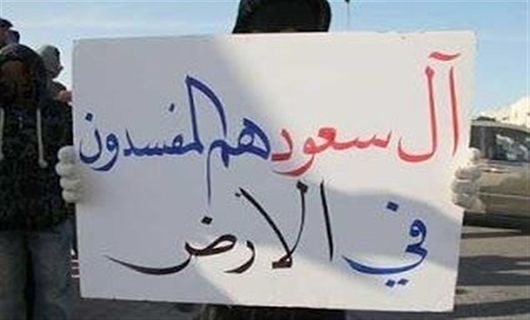 آل سعود هم المفسدون
في الارض